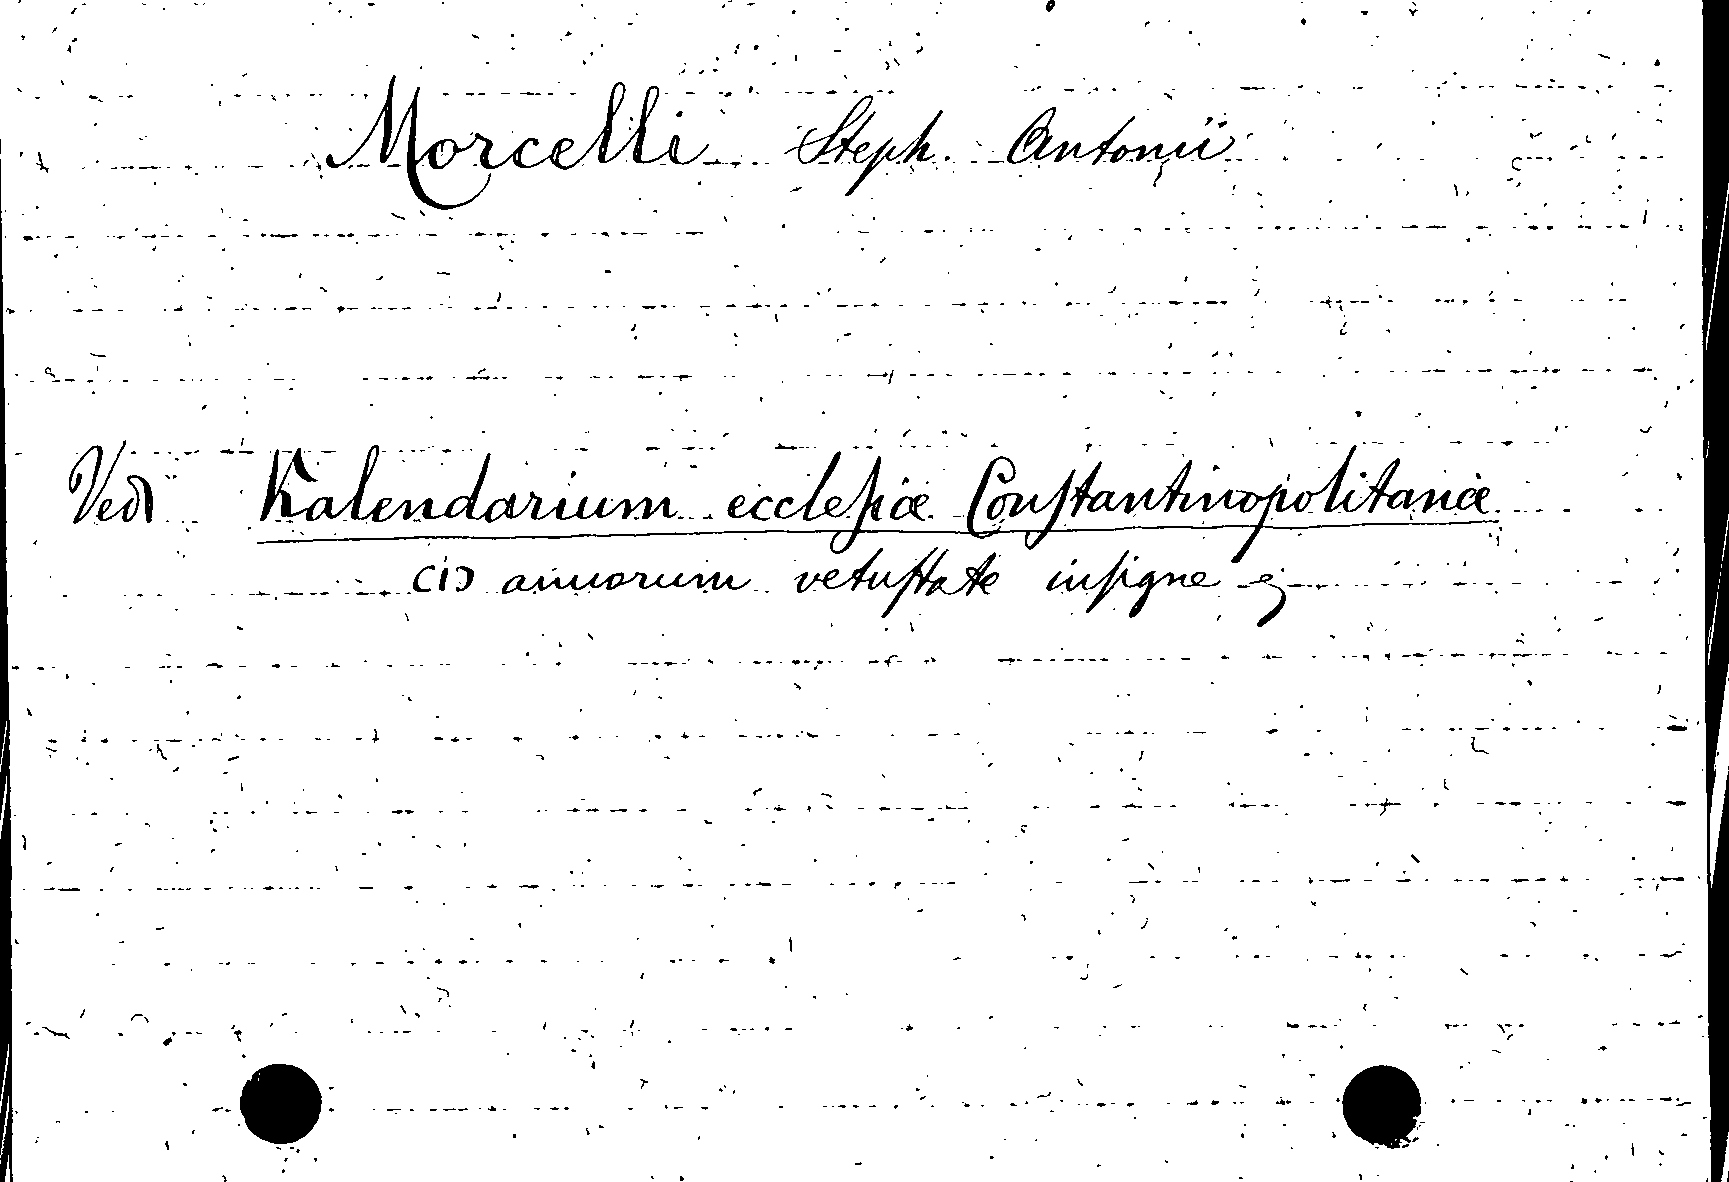 Morcelli Steph. Antonii
Vedi Kalendarium eccleſiæ Conſtantinopolitanæ
CIƆ annorum vetuſtate inſigne